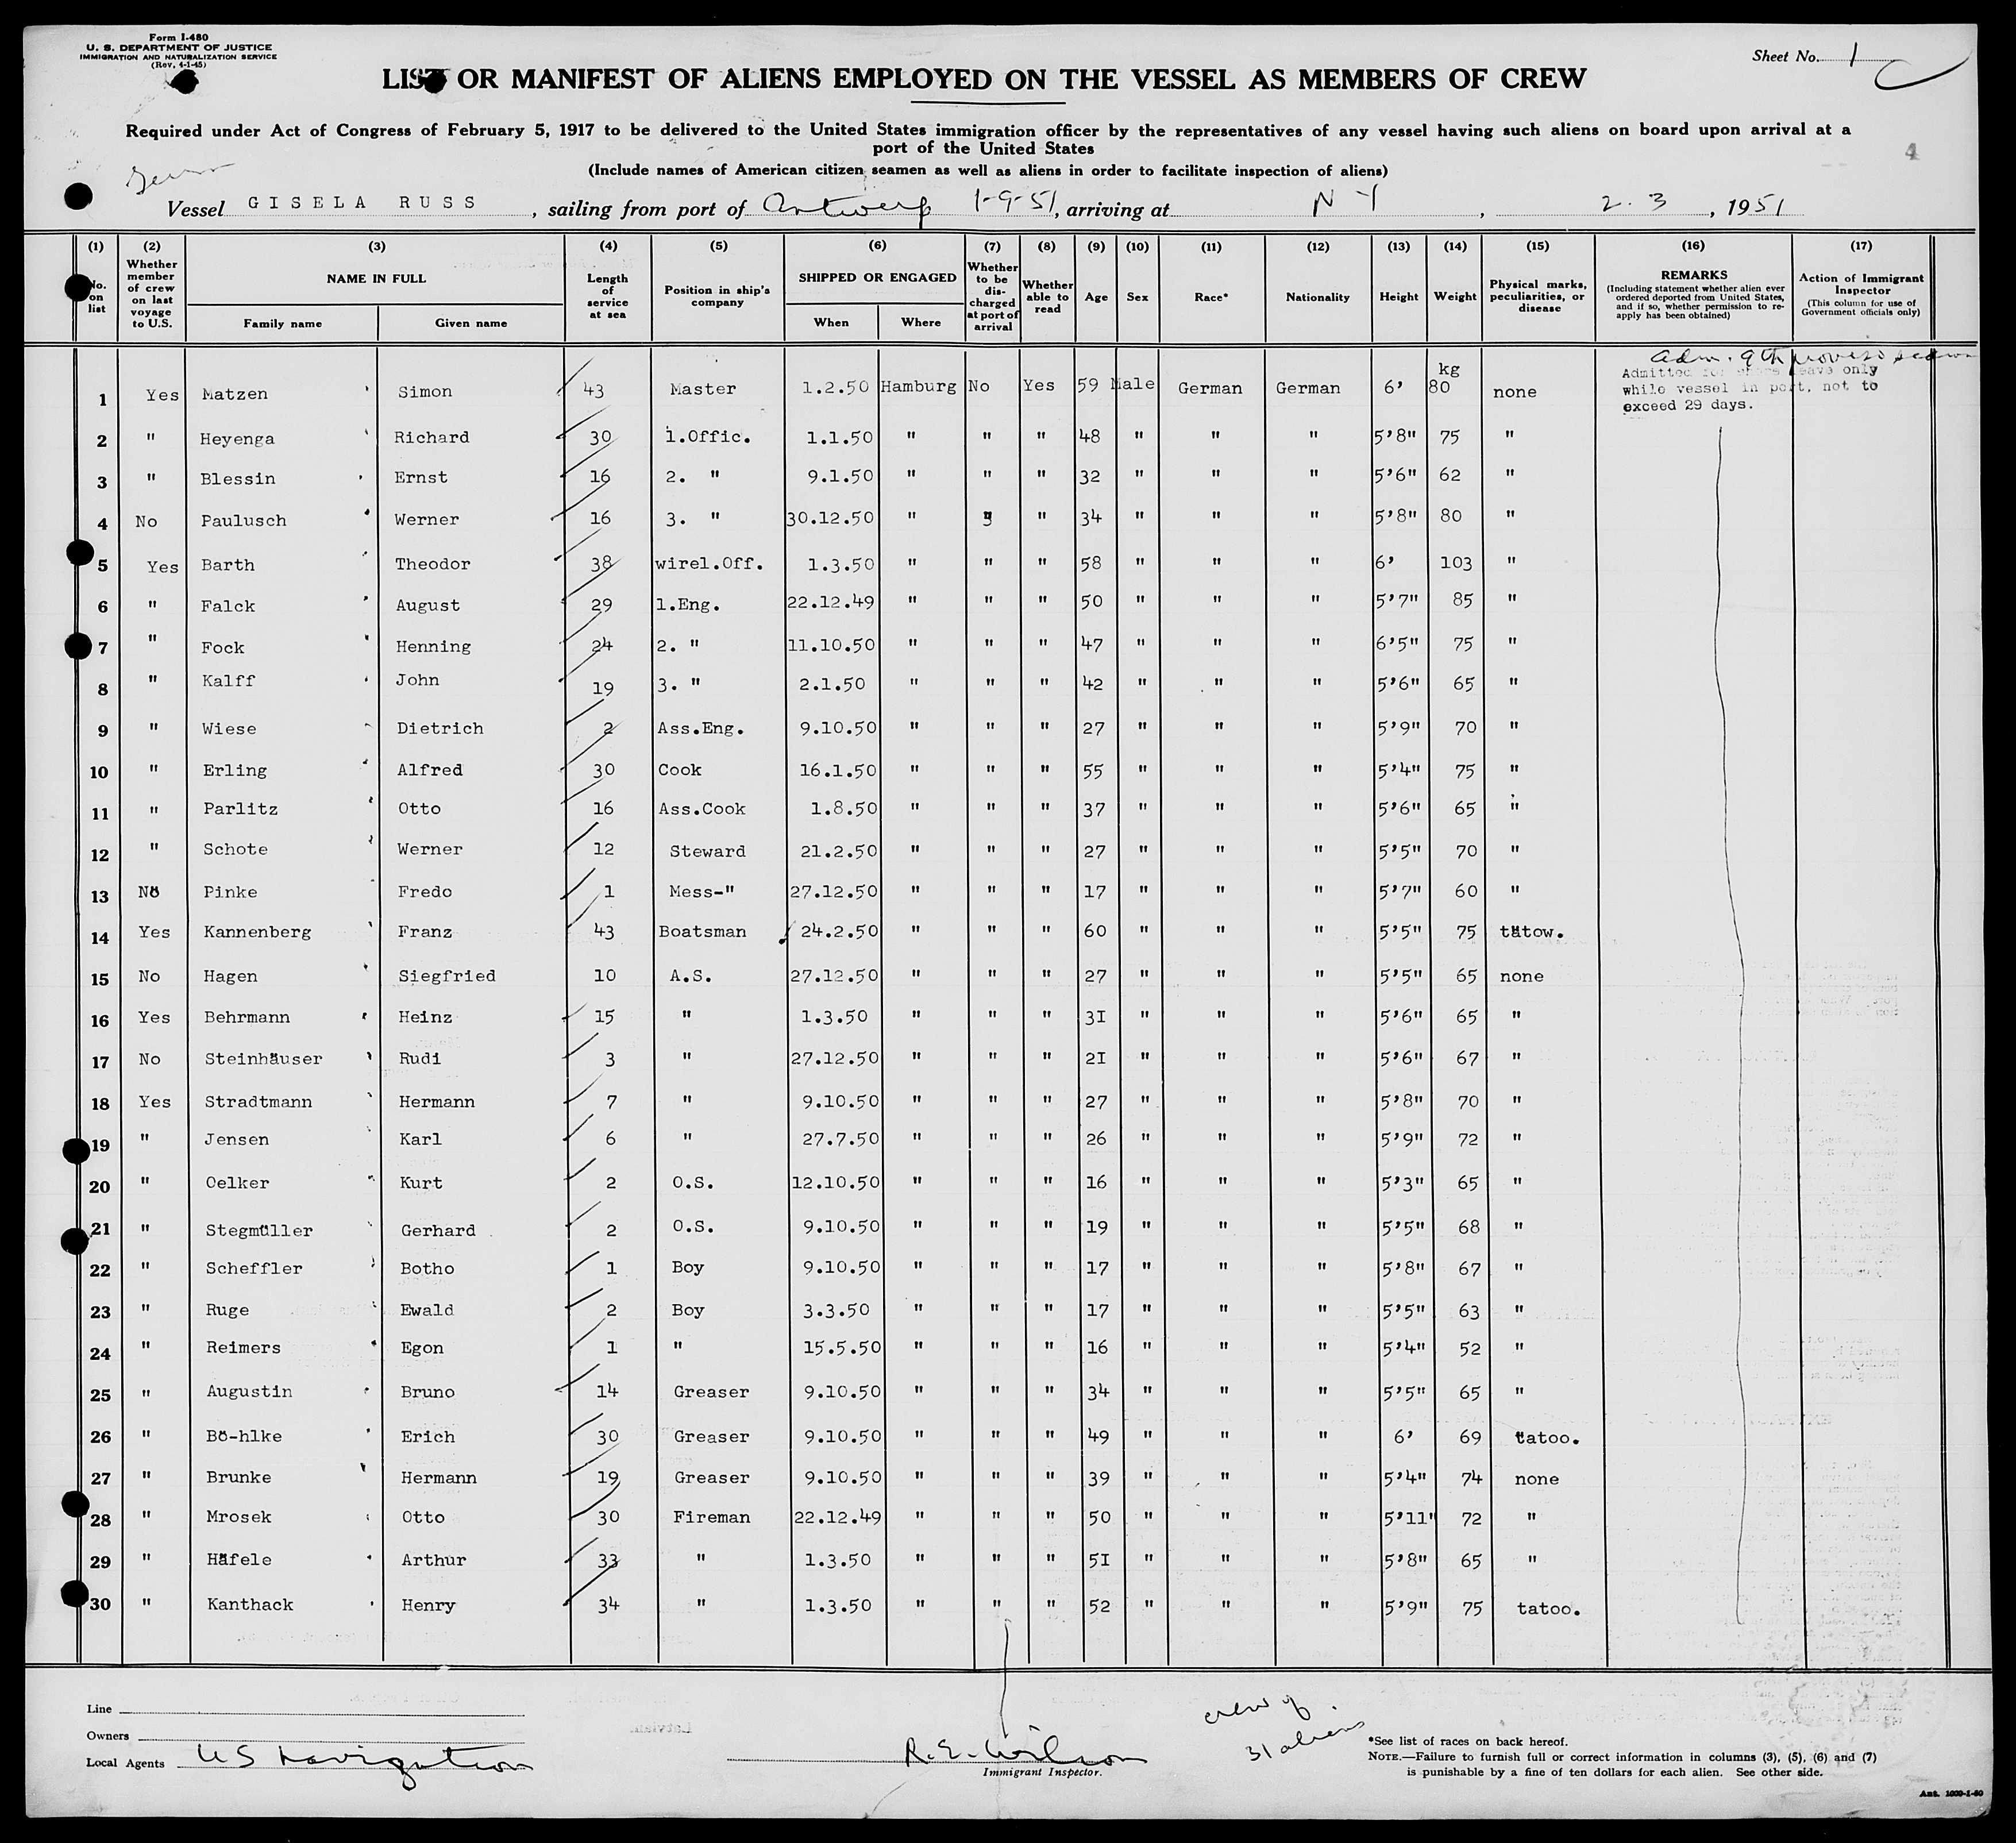 Form I-480
U. S. DEPARTMENT OF JUSTICE
IMMIGRATION AND NATURALIZATION SERVICE
(Rev. 4-1-45)
Sheet No. 1
LIST OR MANIFEST OF ALIENS EMPLOYED ON THE VESSEL AS MEMBERS OF CREW
Required under Act of Congress of February 5, 1917 to be delivered to the United States immigration officer by the representatives of any vessel having such aliens on board upon arrival at a
port of the United States
4
(Include names of American citizen seamen as well as aliens in order to facilitate inspection of aliens)
Vessel GISELA RUSS, sailing from port of Antwerp 1-9-51, arriving at N Y, 2. 3, 1951
(1) (2) (3) (4) (5) (6) (7) (8) (9) (10) (11) (12) (13) (14) (15) (16) (17)
No. on list
Whether member of crew on last voyage to U.S.
NAME IN FULL
Family name
Given name
Length of service at sea
Position in ship's company
SHIPPED OR ENGAGED
When
Where
Whether to be discharged at port of arrival
Whether able to read
Age
Sex
Race*
Nationality
Height
Weight
Physical marks, peculiarities, or disease
REMARKS
(Including statement whether alien ever ordered deported from United States, and if so, whether permission to re-apply has been obtained)
Action of Immigrant Inspector
(This column for use of Government officials only)
Adm. 9th proviso
Admitted for shore leave only
while vessel in port, not to
exceed 29 days.
kg
1 Yes Matzen Simon 43 Master 1.2.50 Hamburg No Yes 59 Male German German 6' 80 none
2 " Heyenga Richard 30 1.Offic. 1.1.50 " " " 48 " " " 5'8" 75 "
3 " Blessin Ernst 16 2. " 9.1.50 " " " 32 " " " 5'6" 62 "
4 No Paulusch Werner 16 3. " 30.12.50 " " " 34 " " " 5'8" 80 "
5 Yes Barth Theodor 38 wirel.Off. 1.3.50 " " " 58 " " " 6' 103 "
6 " Falck August 29 1.Eng. 22.12.49 " " " 50 " " " 5'7" 85 "
7 " Fock Henning 24 2. " 11.10.50 " " " 47 " " " 6'5" 75 "
8 " Kalff John 19 3. " 2.1.50 " " " 42 " " " 5'6" 65 "
9 " Wiese Dietrich 2 Ass.Eng. 9.10.50 " " " 27 " " " 5'9" 70 "
10 " Erling Alfred 30 Cook 16.1.50 " " " 55 " " " 5'4" 75 "
11 " Parlitz Otto 16 Ass.Cook 1.8.50 " " " 37 " " " 5'6" 65 "
12 " Schote Werner 12 Steward 21.2.50 " " " 27 " " " 5'5" 70 "
13 No Pinke Fredo 1 Mess-" 27.12.50 " " " 17 " " " 5'7" 60 "
14 Yes Kannenberg Franz 43 Boatsman 24.2.50 " " " 60 " " " 5'5" 75 tätow.
15 No Hagen Siegfried 10 A.S. 27.12.50 " " " 27 " " " 5'5" 65 none
16 Yes Behrmann Heinz 15 " 1.3.50 " " " 31 " " " 5'6" 65 "
17 No Steinhäuser Rudi 3 " 27.12.50 " " " 21 " " " 5'6" 67 "
18 Yes Stradtmann Hermann 7 " 9.10.50 " " " 27 " " " 5'8" 70 "
19 " Jensen Karl 6 " 27.7.50 " " " 26 " " " 5'9" 72 "
20 " Oelker Kurt 2 O.S. 12.10.50 " " " 16 " " " 5'3" 65 "
21 " Stegmüller Gerhard 2 O.S. 9.10.50 " " " 19 " " " 5'5" 68 "
22 " Scheffler Botho 1 Boy 9.10.50 " " " 17 " " " 5'8" 67 "
23 " Ruge Ewald 2 Boy 3.3.50 " " " 17 " " " 5'5" 63 "
24 " Reimers Egon 1 " 15.5.50 " " " 16 " " " 5'4" 52 "
25 " Augustin Bruno 14 Greaser 9.10.50 " " " 34 " " " 5'5" 65 "
26 " Bö-hlke Erich 30 Greaser 9.10.50 " " " 49 " " " 6' 69 tatoo.
27 " Brunke Hermann 19 Greaser 9.10.50 " " " 39 " " " 5'4" 74 none
28 " Mrosek Otto 30 Fireman 22.12.49 " " " 50 " " " 5'11" 72 "
29 " Häfele Arthur 33 " 1.3.50 " " " 51 " " " 5'8" 65 "
30 " Kanthack Henry 34 " 1.3.50 " " " 52 " " " 5'9" 75 tatoo.
Line
Owners
Local Agents US Navigation
R. E. Wilson
Immigrant Inspector.
crew of
31 aliens
*See list of races on back hereof.
NOTE.—Failure to furnish full or correct information in columns (3), (5), (6) and (7)
is punishable by a fine of ten dollars for each alien. See other side.